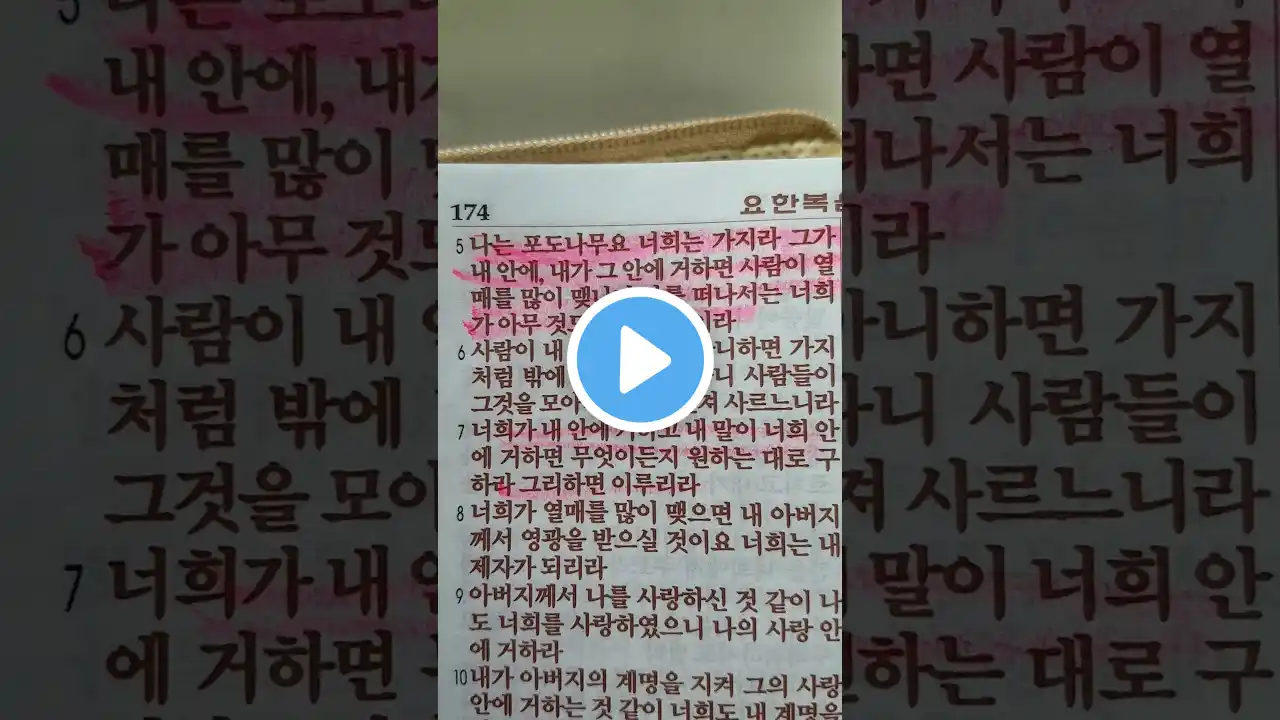 174 요한복
5 나는 포도나무요 너희는 가지라 그가
내 안에, 내가 그 안에 거하면 사람이 열
매를 많이 떠나서는 너희
가 아무 이라
6 사람이 내 아니하면 가지
처럼 밖에 사람들이
그것을 모아 사르느니라
7 너희가 내 안에 거하고 내 말이 너희 안
에 거하면 무엇이든지 원하는 대로 구
하라 그리하면 이루리라
8 너희가 열매를 많이 맺으면 내 아버지
께서 영광을 받으실 것이요 너희는 내
제자가 되리라
9 아버지께서 나를 사랑하신 것 같이 나
도 너희를 사랑하였으니 나의 사랑 안
에 거하라
10 내가 아버지의 계명을 지켜 그의 사랑
안에 거하는 것 같이 너희도 내 계명을